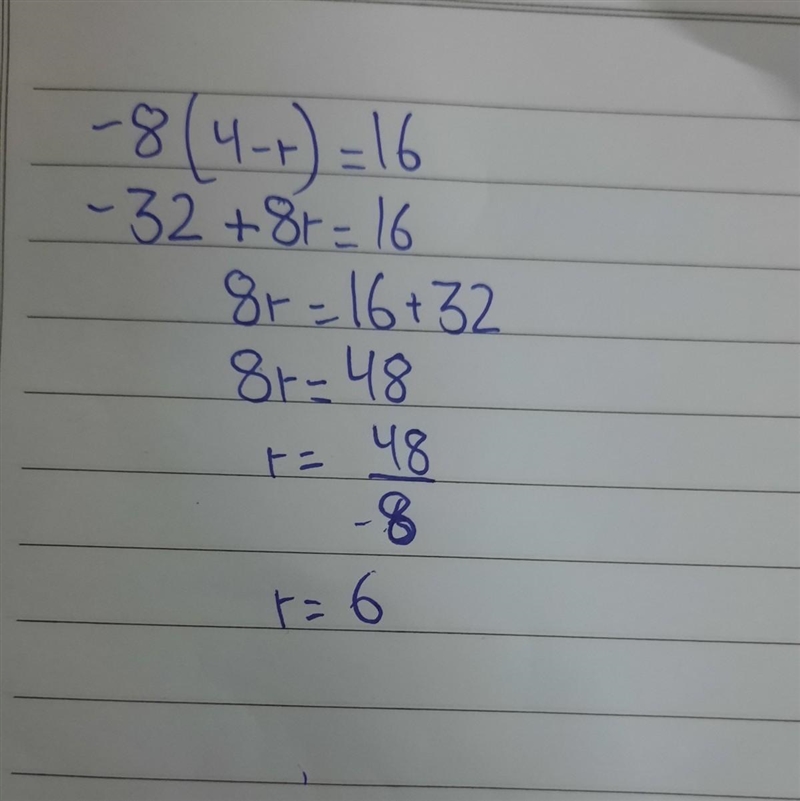 -8(4-r)=16
-32+8r=16
8r=16+32
8r=48
r= 48/-8
r= 6